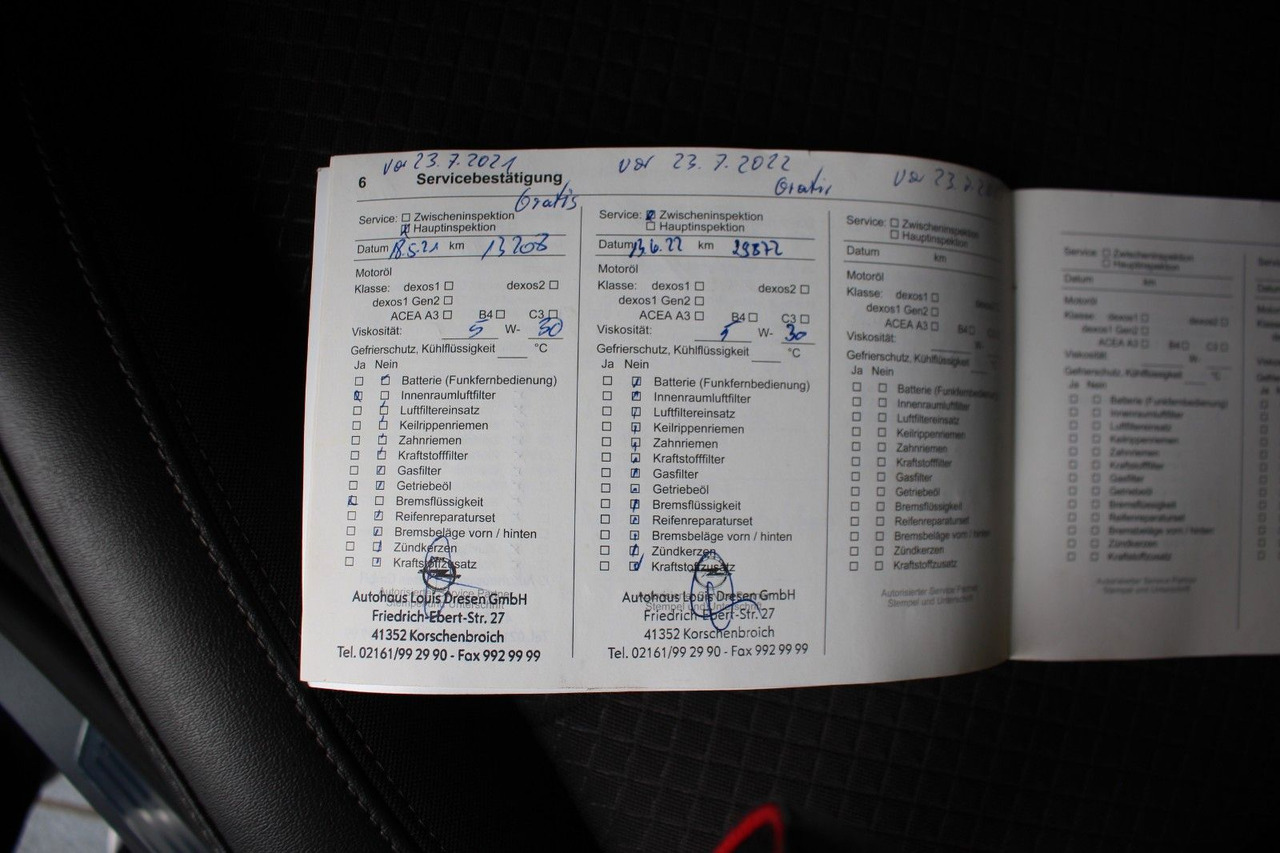 vor 23.7.2021
6 Servicebestätigung
Gratis
Service: Zwischeninspektion
Hauptinspektion
Datum 18.5.21 km 13208
Motoröl
Klasse: dexos1 dexos2
dexos1 Gen2
ACEA A3 B4 C3
Viskosität: 5 W- 30
Gefrierschutz, Kühlflüssigkeit °C
Ja Nein
Batterie (Funkfernbedienung)
Innenraumluftfilter
Luftfiltereinsatz
Keilrippenriemen
Zahnriemen
Kraftstofffilter
Gasfilter
Getriebeöl
Bremsflüssigkeit
Reifenreparaturset
Bremsbeläge vorn / hinten
Zündkerzen
Kraftstoffzusatz
Autorisierter Service Partner
Stempel und Unterschrift
Autohaus Louis Dresen GmbH
Friedrich-Ebert-Str. 27
41352 Korschenbroich
Tel. 02161/99 29 90 - Fax 992 99 99
vor 23.7.2022
Gratis
Service: Zwischeninspektion
Hauptinspektion
Datum 13.6.22 km 29872
Motoröl
Klasse: dexos1 dexos2
dexos1 Gen2
ACEA A3 B4 C3
Viskosität: 5 W- 30
Gefrierschutz, Kühlflüssigkeit °C
Ja Nein
Batterie (Funkfernbedienung)
Innenraumluftfilter
Luftfiltereinsatz
Keilrippenriemen
Zahnriemen
Kraftstofffilter
Gasfilter
Getriebeöl
Bremsflüssigkeit
Reifenreparaturset
Bremsbeläge vorn / hinten
Zündkerzen
Kraftstoffzusatz
Stempel und Unterschrift
Autohaus Louis Dresen GmbH
Friedrich-Ebert-Str. 27
41352 Korschenbroich
Tel. 02161/99 29 90 - Fax 992 99 99
vor 23.7.
Service: Zwischeninspektion
Hauptinspektion
Datum km
Motoröl
Klasse: dexos1
dexos1 Gen2
ACEA A3 B4 C3
Viskosität: W-
Gefrierschutz, Kühlflüssigkeit
Ja Nein
Batterie (Funkfernbedienung
Innenraumluftfilter
Luftfiltereinsatz
Keilrippenriemen
Zahnriemen
Kraftstofffilter
Gasfilter
Getriebeöl
Bremsflüssigkeit
Reifenreparaturset
Bremsbeläge vorn / hinten
Zündkerzen
Kraftstoffzusatz
Autorisierter Service Partner
Stempel und Unterschrift
Service: Zwischeninspektion
Hauptinspektion
Datum km
Motoröl
Klasse: dexos1 dexos2
dexos1 Gen2
ACEA A3 B4 C3
Viskosität: W-
Gefrierschutz, Kühlflüssigkeit °C
Ja Nein
Batterie (Funkfernbedienung)
Innenraumluftfilter
Luftfiltereinsatz
Keilrippenriemen
Zahnriemen
Kraftstofffilter
Gasfilter
Getriebeöl
Bremsflüssigkeit
Reifenreparaturset
Bremsbeläge vorn / hinten
Zündkerzen
Kraftstoffzusatz
Autorisierter Service Partner
Stempel und Unterschrift